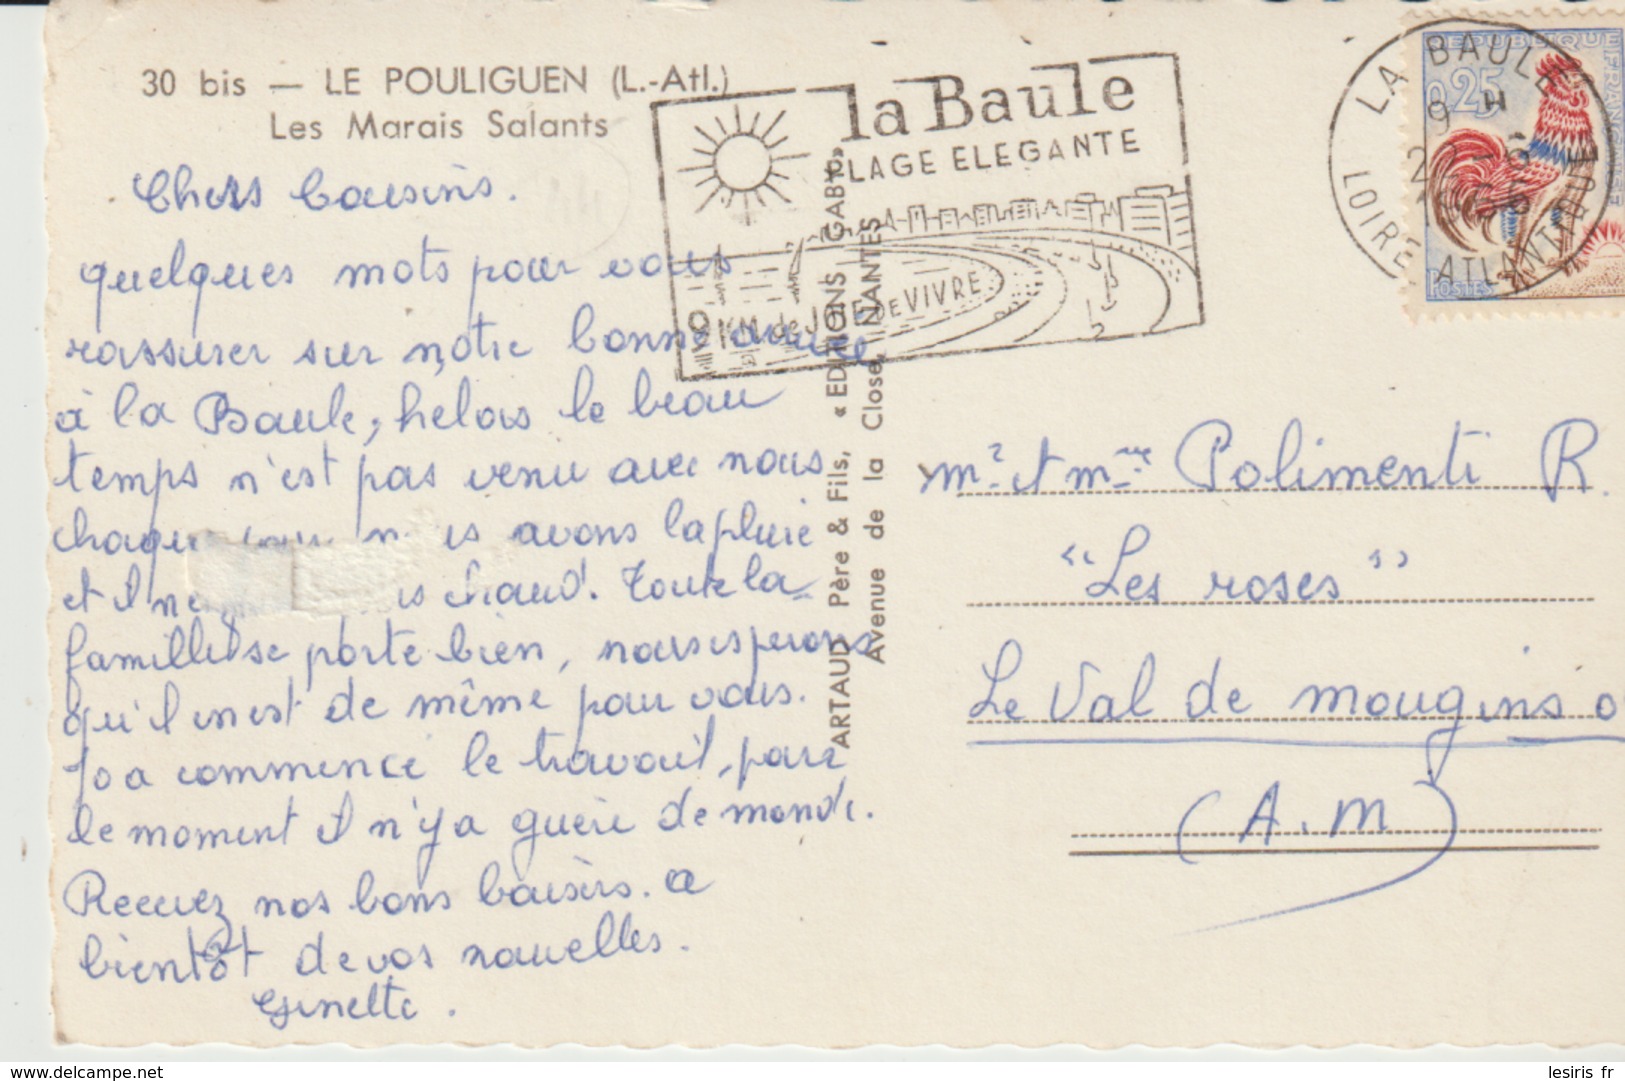 30 bis — LE POULIGUEN (L.-Atl.)
Les Marais Salants
Chers Cousins.
quelques mots pour vous
rassurer sur notre bonne arrivée
à la Baule, helas le beau
temps n'est pas venu avec nous
chaque jour nous avons la pluie
et il ne chaud. Toute la
famille se porte bien, nous esperons
qu'il en est de même pour vous.
Jo a commencé le travail, pour
le moment il n'y a guère de monde.
Recevez nos bons baisers. a
bientôt de vos nouvelles.
Ginette.
la Baule
PLAGE ELEGANTE
9 KM de JOIE DE VIVRE
ARTAUD Père & Fils, « EDITIONS GABY »
Avenue de la Close, NANTES
LA BAULE
9 H
22-5
LOIRE ATLANTIQUE
REPUBLIQUE FRANÇAISE
0,25
POSTES
Mr et Mme Polimenti R.
"Les roses"
Le Val de Mougins
(A.M)
lesiris fr